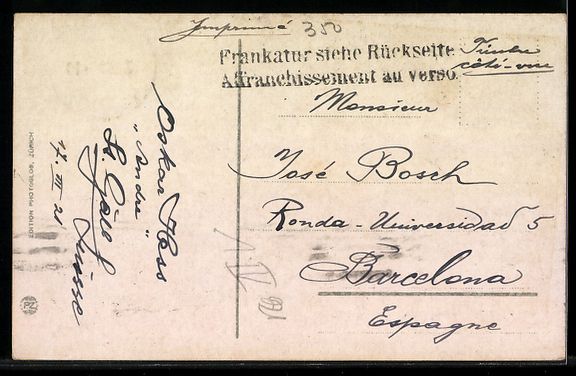 Imprimé
350
Frankatur siehe Rückseite
Affranchissement au verso.
Timbre
côté-vue
Monsieur
José Bosch
Ronda-Universidad 5
Barcelona
Espagne
Oskar Hess
"Andre"
St. Gall
Suisse
17. III 21
EDITION PHOTOGLOB, ZÜRICH
PZ